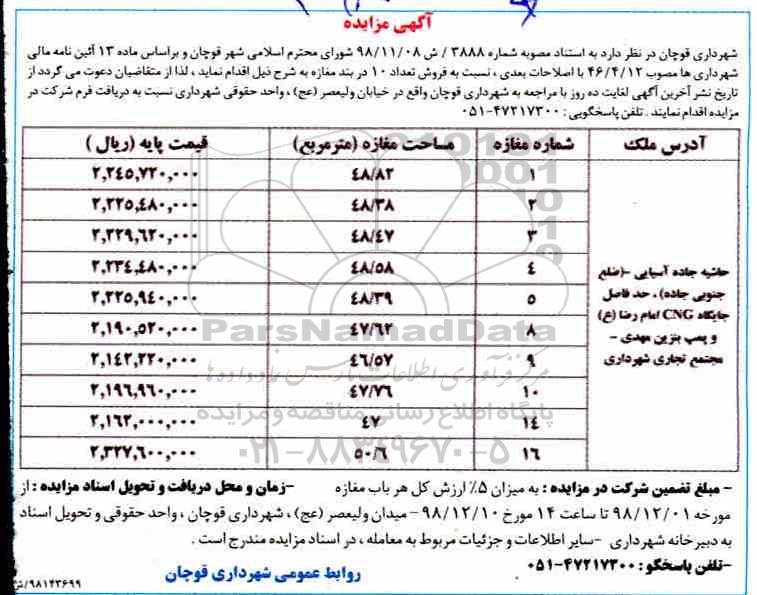 آگهی مزایده
شهرداری قوچان در نظر دارد به استناد مصوبه شماره ۳۸۸۸ / ش ۹۸/۱۱/۰۸ شورای محترم اسلامی شهر قوچان و براساس ماده ۱۳ آئین نامه مالی
شهرداری ها مصوب ۴۶/۴/۱۲ با اصلاحات بعدی ، نسبت به فروش تعداد ۱۰ در بند مغازه به شرح ذیل اقدام نماید ، لذا از متقاضیان دعوت می گردد از
تاریخ نشر آخرین آگهی لغایت ده روز با مراجعه به شهرداری قوچان واقع در خیابان ولیعصر (عج) ، واحد حقوقی شهرداری نسبت به دریافت فرم شرکت در
مزایده اقدام نمایند . تلفن پاسخگویی : ۴۷۲۱۷۳۰۰-۰۵۱
آدرس ملک شماره مغازه مساحت مغازه (مترمربع) قیمت پایه (ریال )
۱ ۴۸/۸۲ ۲,۲۴۵,۷۲۰,۰۰۰
۲ ۴۸/۳۸ ۲,۲۲۵,۴۸۰,۰۰۰
۳ ۴۸/۴۷ ۲,۲۲۹,۶۲۰,۰۰۰
۴ ۴۸/۵۸ ۲,۲۳۴,۴۸۰,۰۰۰
۵ ۴۸/۳۹ ۲,۲۲۵,۹۴۰,۰۰۰
۸ ۴۷/۶۲ ۲,۱۹۰,۵۲۰,۰۰۰
۹ ۴۶/۵۷ ۲,۱۴۲,۲۲۰,۰۰۰
۱۰ ۴۷/۷۶ ۲,۱۹۶,۹۶۰,۰۰۰
۱۴ ۴۷ ۲,۱۶۲,۰۰۰,۰۰۰
۱۶ ۵۰/۶ ۲,۳۲۷,۶۰۰,۰۰۰
حاشیه جاده آسیایی -(ضلع
جنوبی جاده) ، حد فاصل
جایگاه CNG امام رضا (ع)
و پمپ بنزین مهدی -
مجتمع تجاری شهرداری
ParsNamadData
پایگاه اطلاع رسانی مناقصه و مزایده
۰۲۱-۸۸۳۴۹۶۷۰-۵
- مبلغ تضمین شرکت در مزایده : به میزان ۵٪ ارزش کل هر باب مغازه -زمان و محل دریافت و تحویل اسناد مزایده : از
مورخه ۹۸/۱۲/۰۱ تا ساعت ۱۴ مورخ ۹۸/۱۲/۱۰ - میدان ولیعصر (عج) ، شهرداری قوچان ، واحد حقوقی و تحویل اسناد
به دبیرخانه شهرداری -سایر اطلاعات و جزئیات مربوط به معامله ، در اسناد مزایده مندرج است .
-تلفن پاسخگو : ۴۷۲۱۷۳۰۰-۰۵۱
روابط عمومی شهرداری قوچان
۹۸۱۴۳۶۹۹/ش